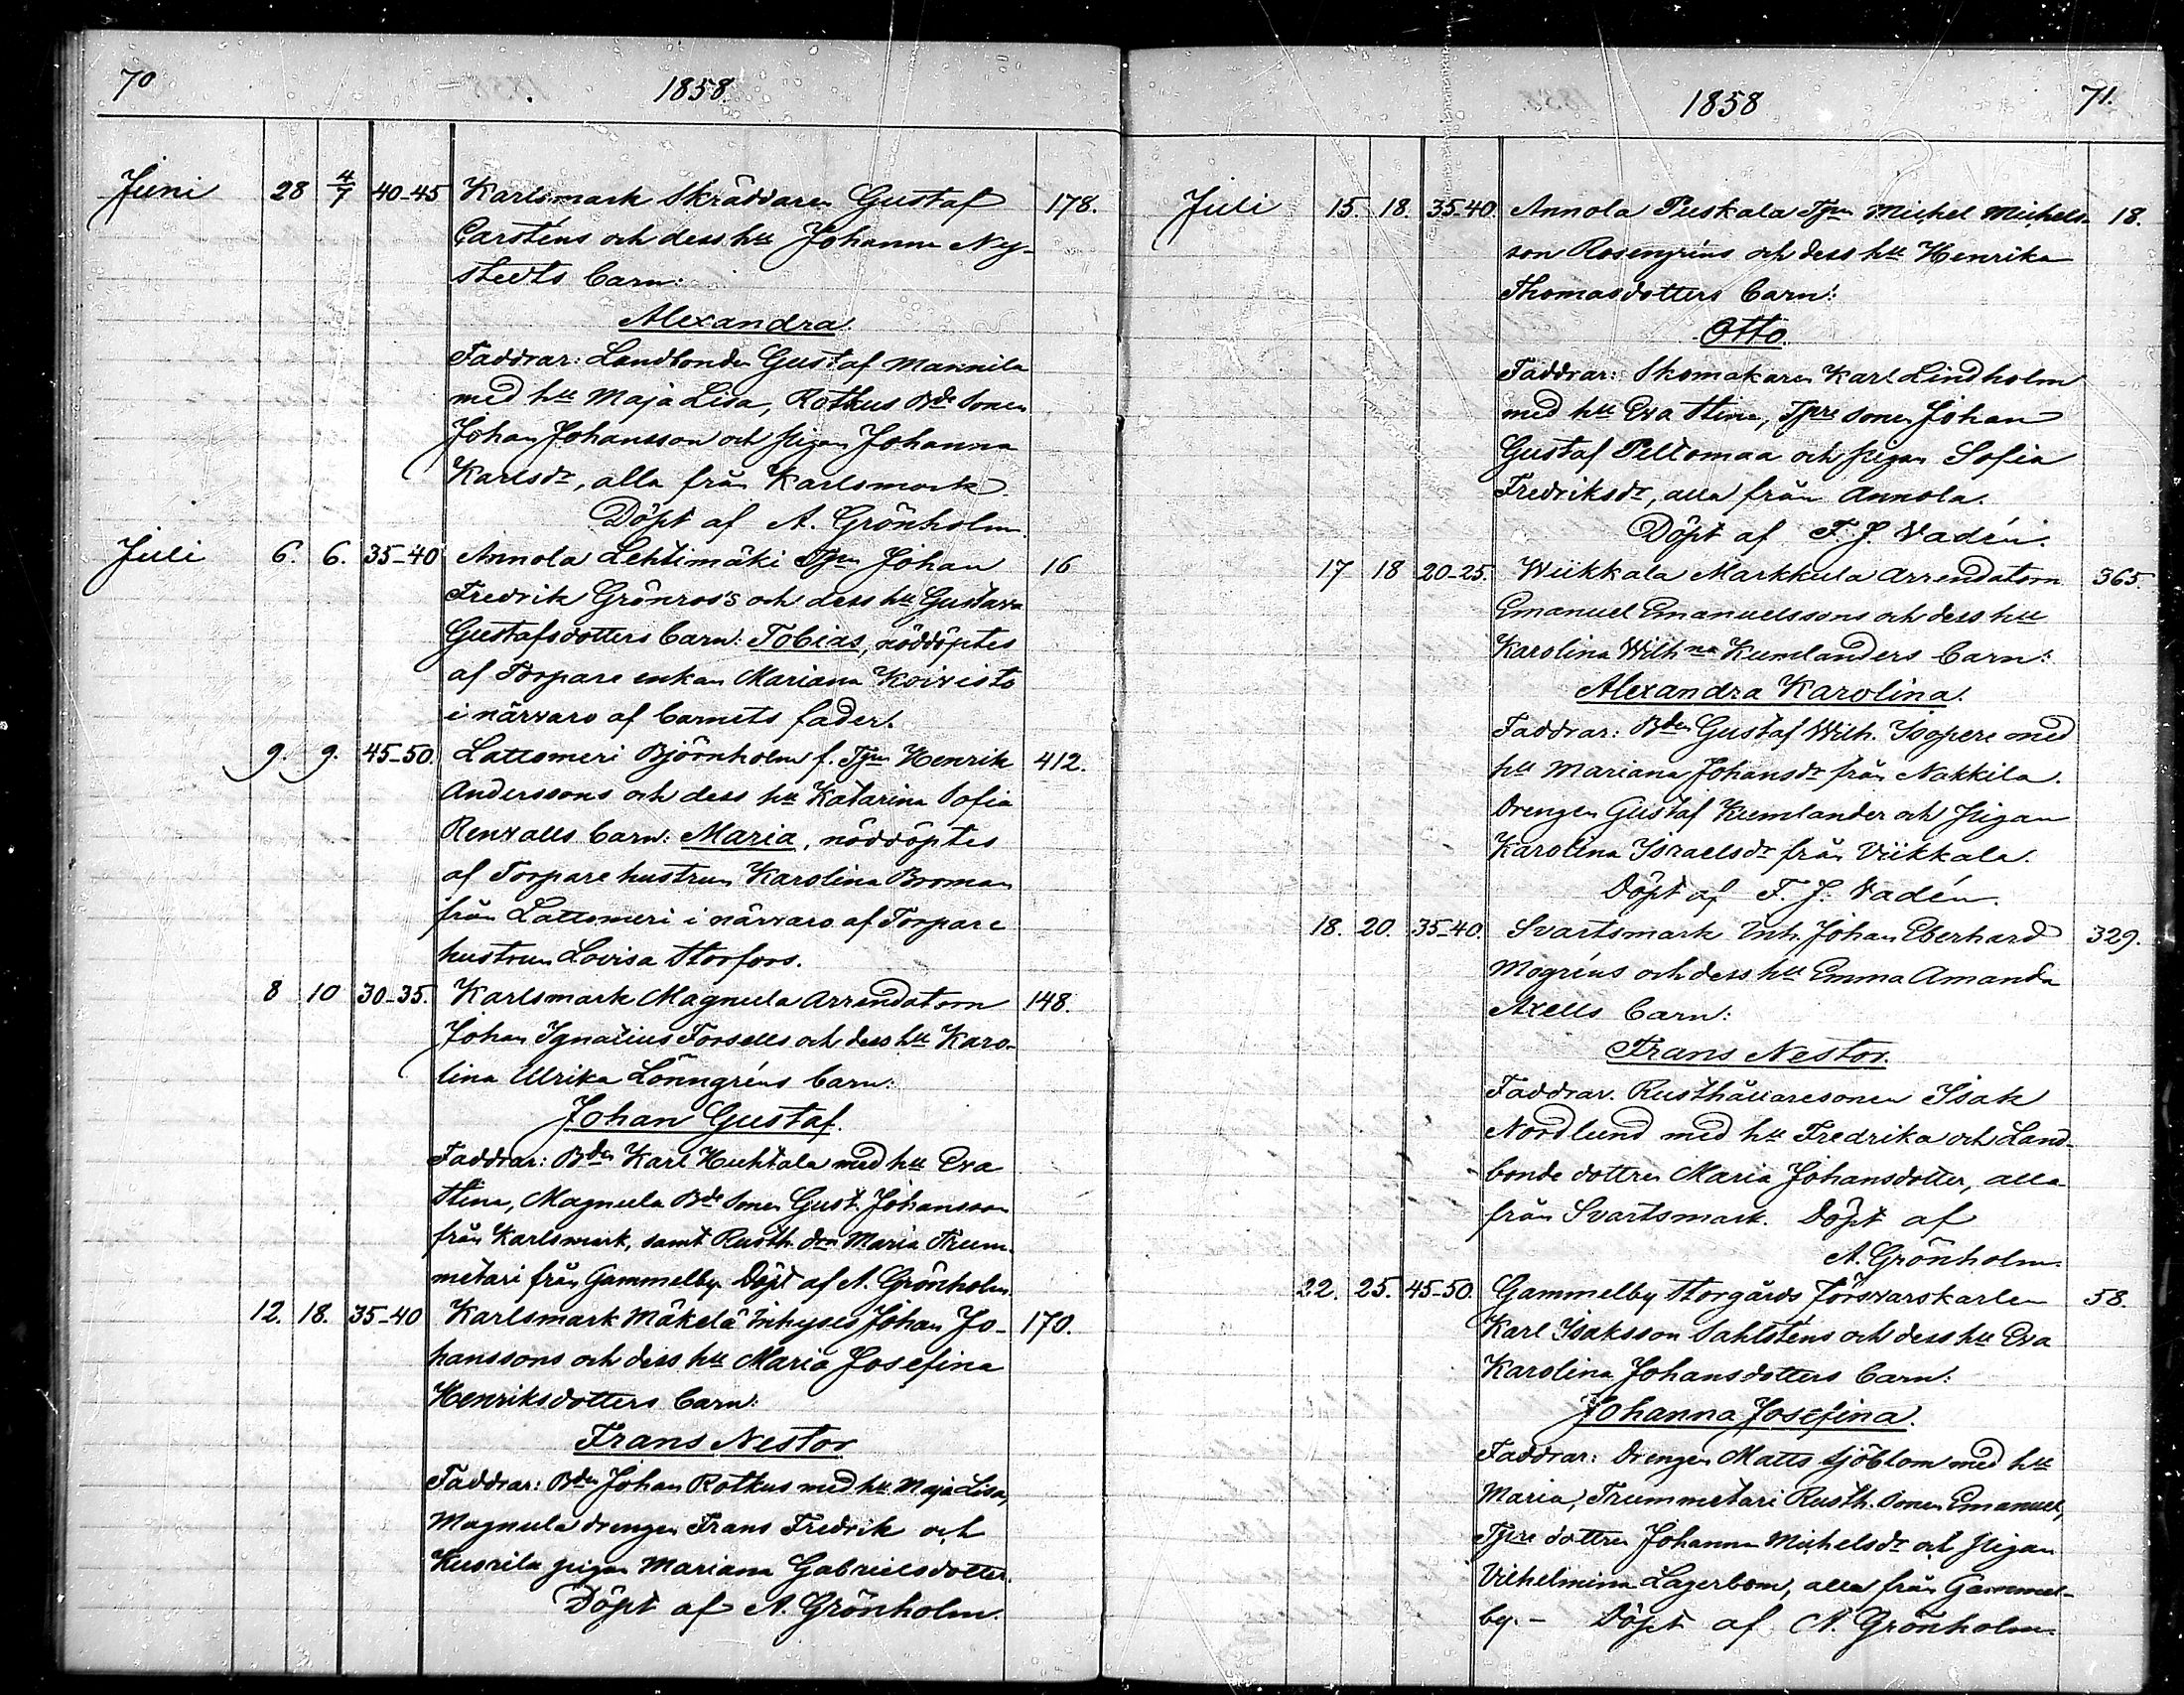 70
1858.
Juni 28 4/7 40-45 Karlsmark Skräddaren Gustaf 178.
Carsténs och dess hu Johanna Ny-
stedts barn:
Alexandra.
Faddrar: Landbonden Gustaf Mannila
med hu Maja Lisa, Rotkus Bde sonen
Johan Johansson och pigan Johanna
Karlsdr, alla från Karlsmark.
Döpt af A. Grönholm.
Juli 6. 6. 35-40 Annola Lehtimäki Tpn Johan 16
Fredrik Grönros's och dess hu Gustava
Gustafsdotters barn: Tobias, nöddöptes
af Torpare enkan Mariana Koivisto
i närvaro af barnets fader.
9. 9. 45-50. Lattomeri Björnholm f. Tpn Henrik 412.
Anderssons och dess hu Katarina Sofia
Renvalls barn: Maria, nöddöptes
af Torpare hustrun Karolina Broman
från Lattomeri i närvaro af Torpare
hustrun Lovisa Storfors.
8 10 30-35. Karlsmark Magnula Arrendatorn 148.
Johan Ignatius Forsells och dess hu Karo-
lina Ulrika Lönngréns barn:
Johan Gustaf.
Faddrar: Bden Karl Huhtala med hu Eva
Stina, Magnula Bde sonen Gust. Johansson
från Karlsmark, samt Rusth. drn Maria Trum-
metari från Gammelby. Döpt af A. Grönholm.
12. 18. 35-40 Karlsmark Mäkelä Inhyses Johan Jo- 170.
hanssons och dess hu Maria Josefina
Henriksdotters barn:
Frans Nestor
Faddrar: Bden Johan Rotkus med hu Maja Lisa,
Magnula drengen Frans Fredrik och
pigan Mariana Gabrielsdotter.
Döpt af A. Grönholm.
1858
71.
Juli 15. 18. 35-40. Annola Puskala Tpn Michel Michels- 18.
son Rosengréns och dess hu Henrika
Thomasdotters barn:
Otto.
Faddrar: Skomakaren Karl Lindholm
med hu Eva Stina, Tpre sonen Johan
Gustaf Peltomaa och pigan Sofia
Fredriksdr, alla från Annola.
Döpt af F. J. Vadén.
17 18 20-25. Wiikkala Markkula Arrendatorn 365.
Emanuel Emanuelssons och dess hu
Karolina Wilhna Kumlanders barn:
Alexandra Karolina.
Faddrar: Bden Gustaf Wilh. Isopere med
hu Mariana Johansdr från Nakkila.
Drengen Gustaf Kumlander och pigan
Karolina Israelsdr från Viikkala.
Döpt af F. J. Vadén.
18. 20. 35-40. Svartsmark Inh. Johan Eberhard 329.
Mogréns och dess hu Emma Amanda
Axells barn:
Frans Nestor.
Faddrar. Rusthållaresonen Isak
Nordlund med hu Fredrika och Land-
bonde dottren Maria Johansdotter, alla
från Svartsmark. Döpt af
A. Grönholm.
22. 25. 45-50. Gammelby Storgårds Försvarskarlen 58.
Karl Isaksson Sahlsténs och dess hu Eva
Karolina Johansdotters barn:
Johanna Josefina.
Faddrar: Drengen Matts Sjöblom med hu
Maria, Trummetari Rusth. sonen Emanuel,
Tpre dottren Johanna Michelsdr och pigan
Vilhelmina Lagerbom, alla från Gammel-
by. - Döpt af A. Grönholm.